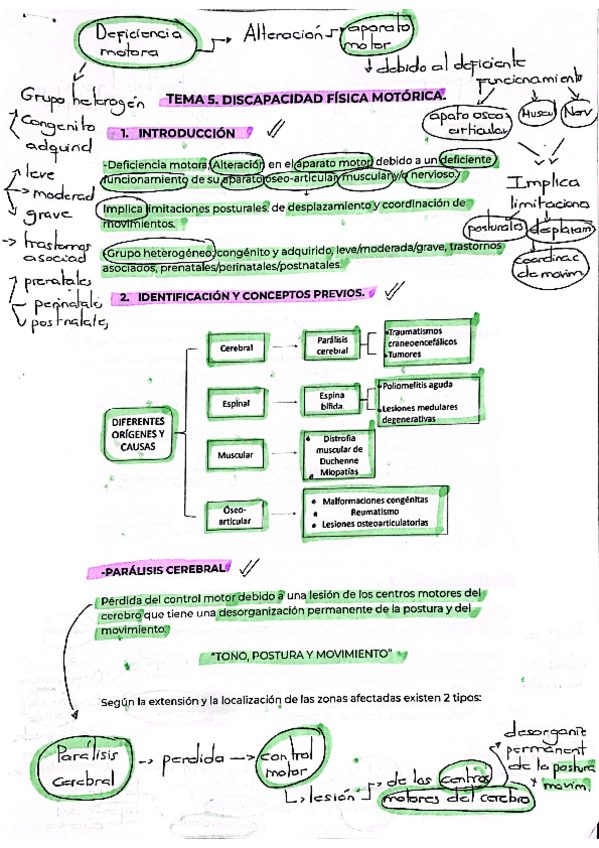 Deficiencia
motora
Alteración
aparato
motor
debido al deficiente
funcionamiento
Grupo heterogén
Congenito
adquirid
leve
moderad
grave
trastornos
asociad
prenatales
perinatale
postnatale
TEMA 5. DISCAPACIDAD FÍSICA MOTÓRICA.
apato oseo
articular
Muscul
Nerv
Implica
limitaciona
posturales
desplazam
coordinac
de movim.
1. INTRODUCCIÓN
-Deficiencia motora: Alteración en el aparato motor debido a un deficiente
funcionamiento de su aparato oseo-articular, muscular y/o nervioso.
Implica limitaciones posturales, de desplazamiento y coordinación de
movimientos.
Grupo heterogéneo, congénito y adquirido, leve/moderada/grave, trastornos
asociados, prenatales/perinatales/postnatales.
2. IDENTIFICACIÓN Y CONCEPTOS PREVIOS.
DIFERENTES
ORÍGENES Y
CAUSAS
Cerebral
Parálisis
cerebral
Traumatismos
craneoencefálicos
Tumores
Espinal
Espina
bífida
Poliomelitis aguda
Lesiones medulares
degenerativas
Muscular
Distrofia
muscular de
Duchenne
Miopatías
Óseo-
articular
Malformaciones congénitas
Reumatismo
Lesiones osteoarticulatorias
-PARÁLISIS CEREBRAL
Pérdida del control motor debido a una lesión de los centros motores del
cerebro que tiene una desorganización permanente de la postura y del
movimiento.
"TONO, POSTURA Y MOVIMIENTO"
Según la extensión y la localización de las zonas afectadas existen 2 tipos:
Parálisis
cerebral
perdida
control
motor
lesión
de los centros
motores del cerebro
desorganite
permanent
de la postura
y movim.